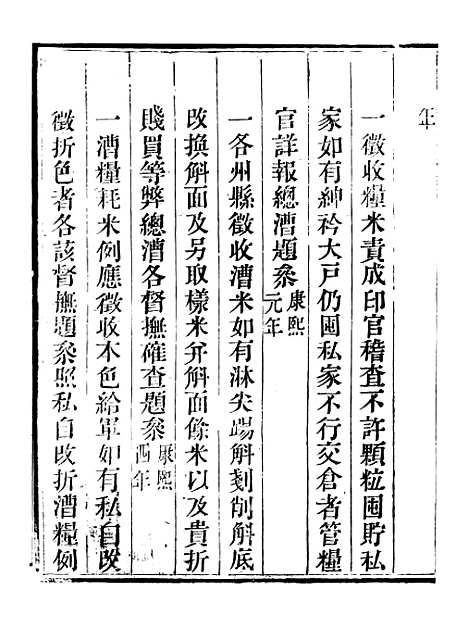 年
一徵收糧米責成印官稽查不許顆粒囤貯私
家如有紳衿大戶仍囤私家不行交倉者管糧
官詳報總漕題叅康熙元年
一各州縣徵收漕米如有淋尖踢斛刻削斛底
改換斛面及另取樣米并斛面餘米以及貴折
賤買等弊總漕各督撫確查題叅康熙四年
一漕糧耗米例應徵收本色給軍如有私自改
徵折色者各該督撫題叅照私自改折漕糧例